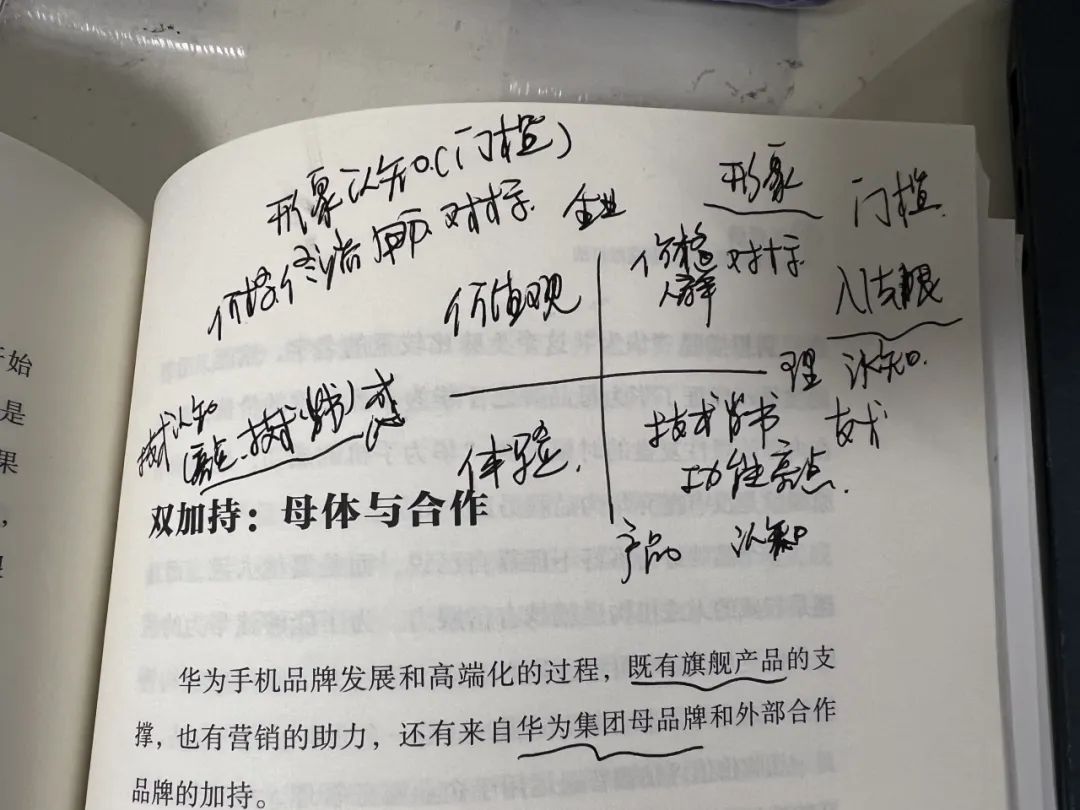 形象认知（门槛）
价格 终端 对标
企业
形象
门槛
价值观
价格 对标
人群
入法眼
理 认知
技术认知
亮点 技术（背书）感
体验
技术背书 技术
功能亮点
产品 认知
双加持：母体与合作
华为手机品牌发展和高端化的过程，既有旗舰产品的支
撑，也有营销的助力，还有来自华为集团母品牌和外部合作
品牌的加持。
开始
是
果
，